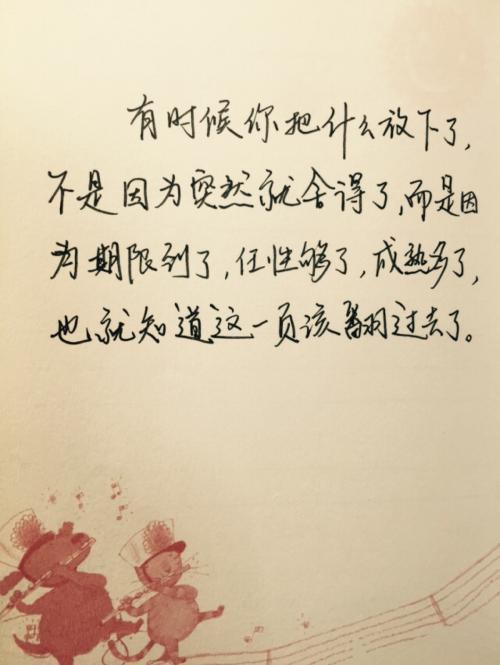 有时候你把什么放下了，
不是因为突然就舍得了，而是因
为期限到了，任性够了，成熟多了，
也就知道这一页该翻过去了。